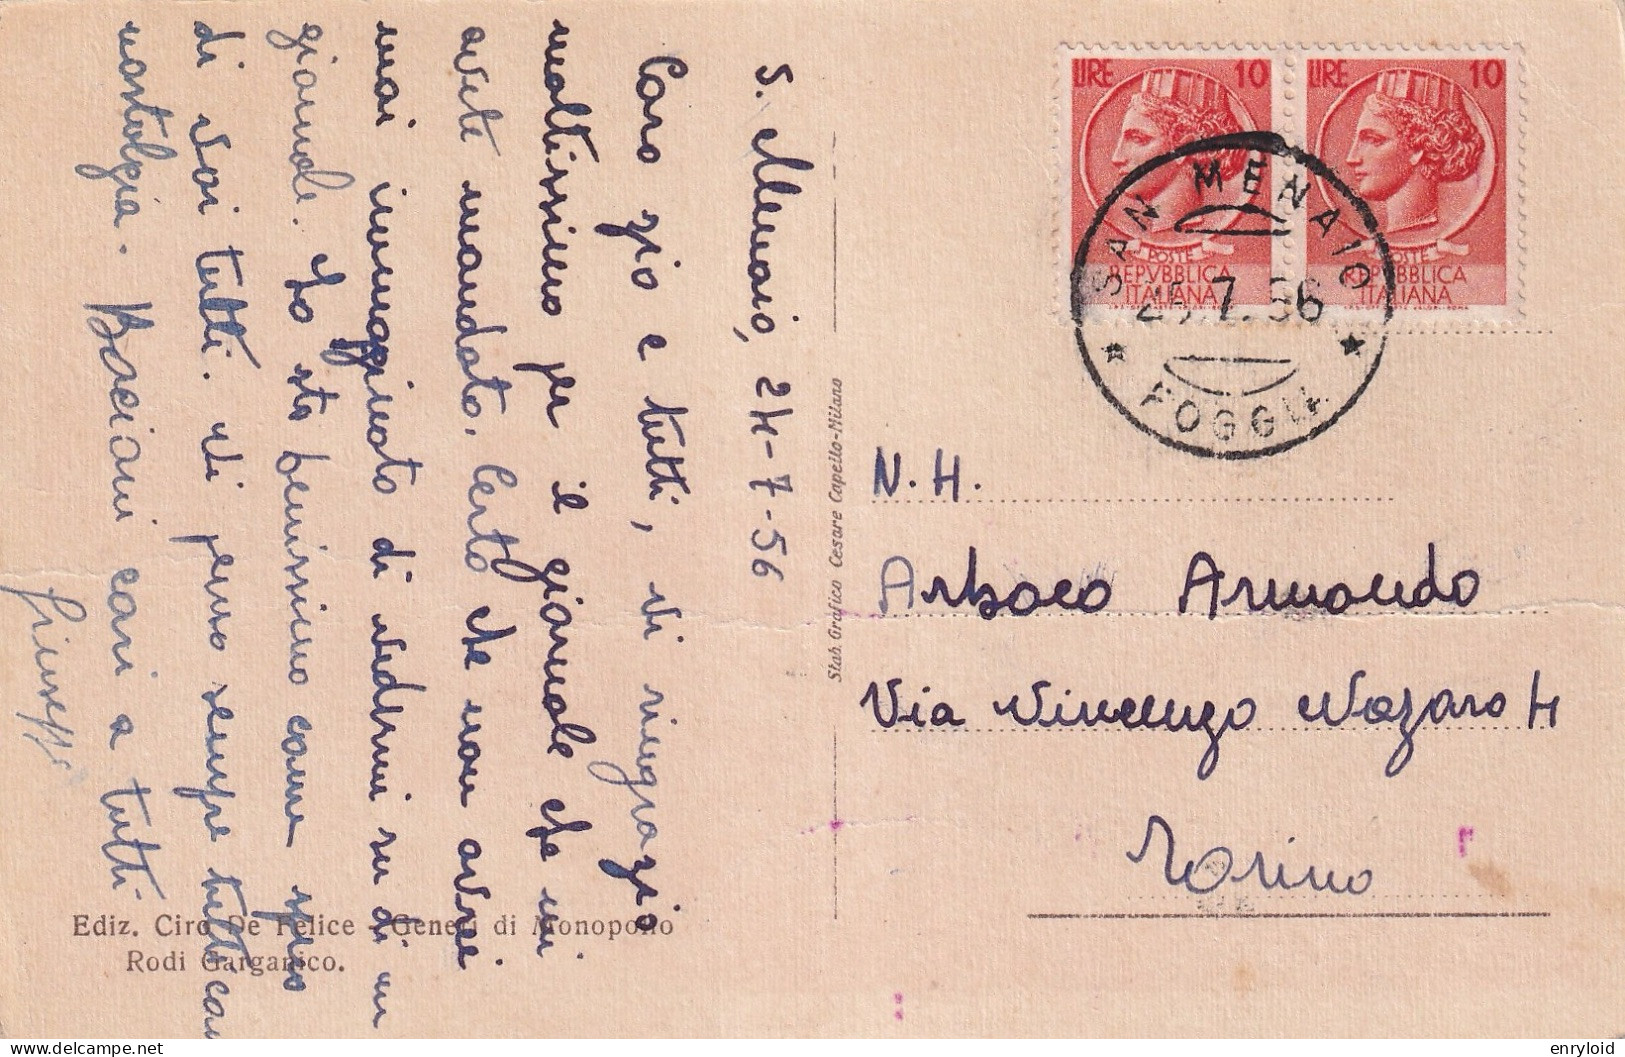 S. Menaio, 24-7-56
Caro zio e tutti, vi ringrazio
moltissimo per il giornale che mi
avete mandato. Certo che non avrei
mai immaginato di vedermi su di un
giornale. Io sto benissimo come spero
di voi tutti. Vi penso sempre tutti con
nostalgia. Bacioni cari a tutti
Giuseppe
Ediz. Ciro De Felice - Generi di Monopolio
Rodi Garganico.
Stab. Grafico Cesare Capello-Milano
LIRE 10
POSTE
REPVBBLICA
ITALIANA
LIRE 10
POSTE
REPVBBLICA
ITALIANA
SAN MENAIO
25.7.56
FOGGIA
N.H.
Arboreo Armando
Via Vincenzo Nazaro 4
Torino
enryloid